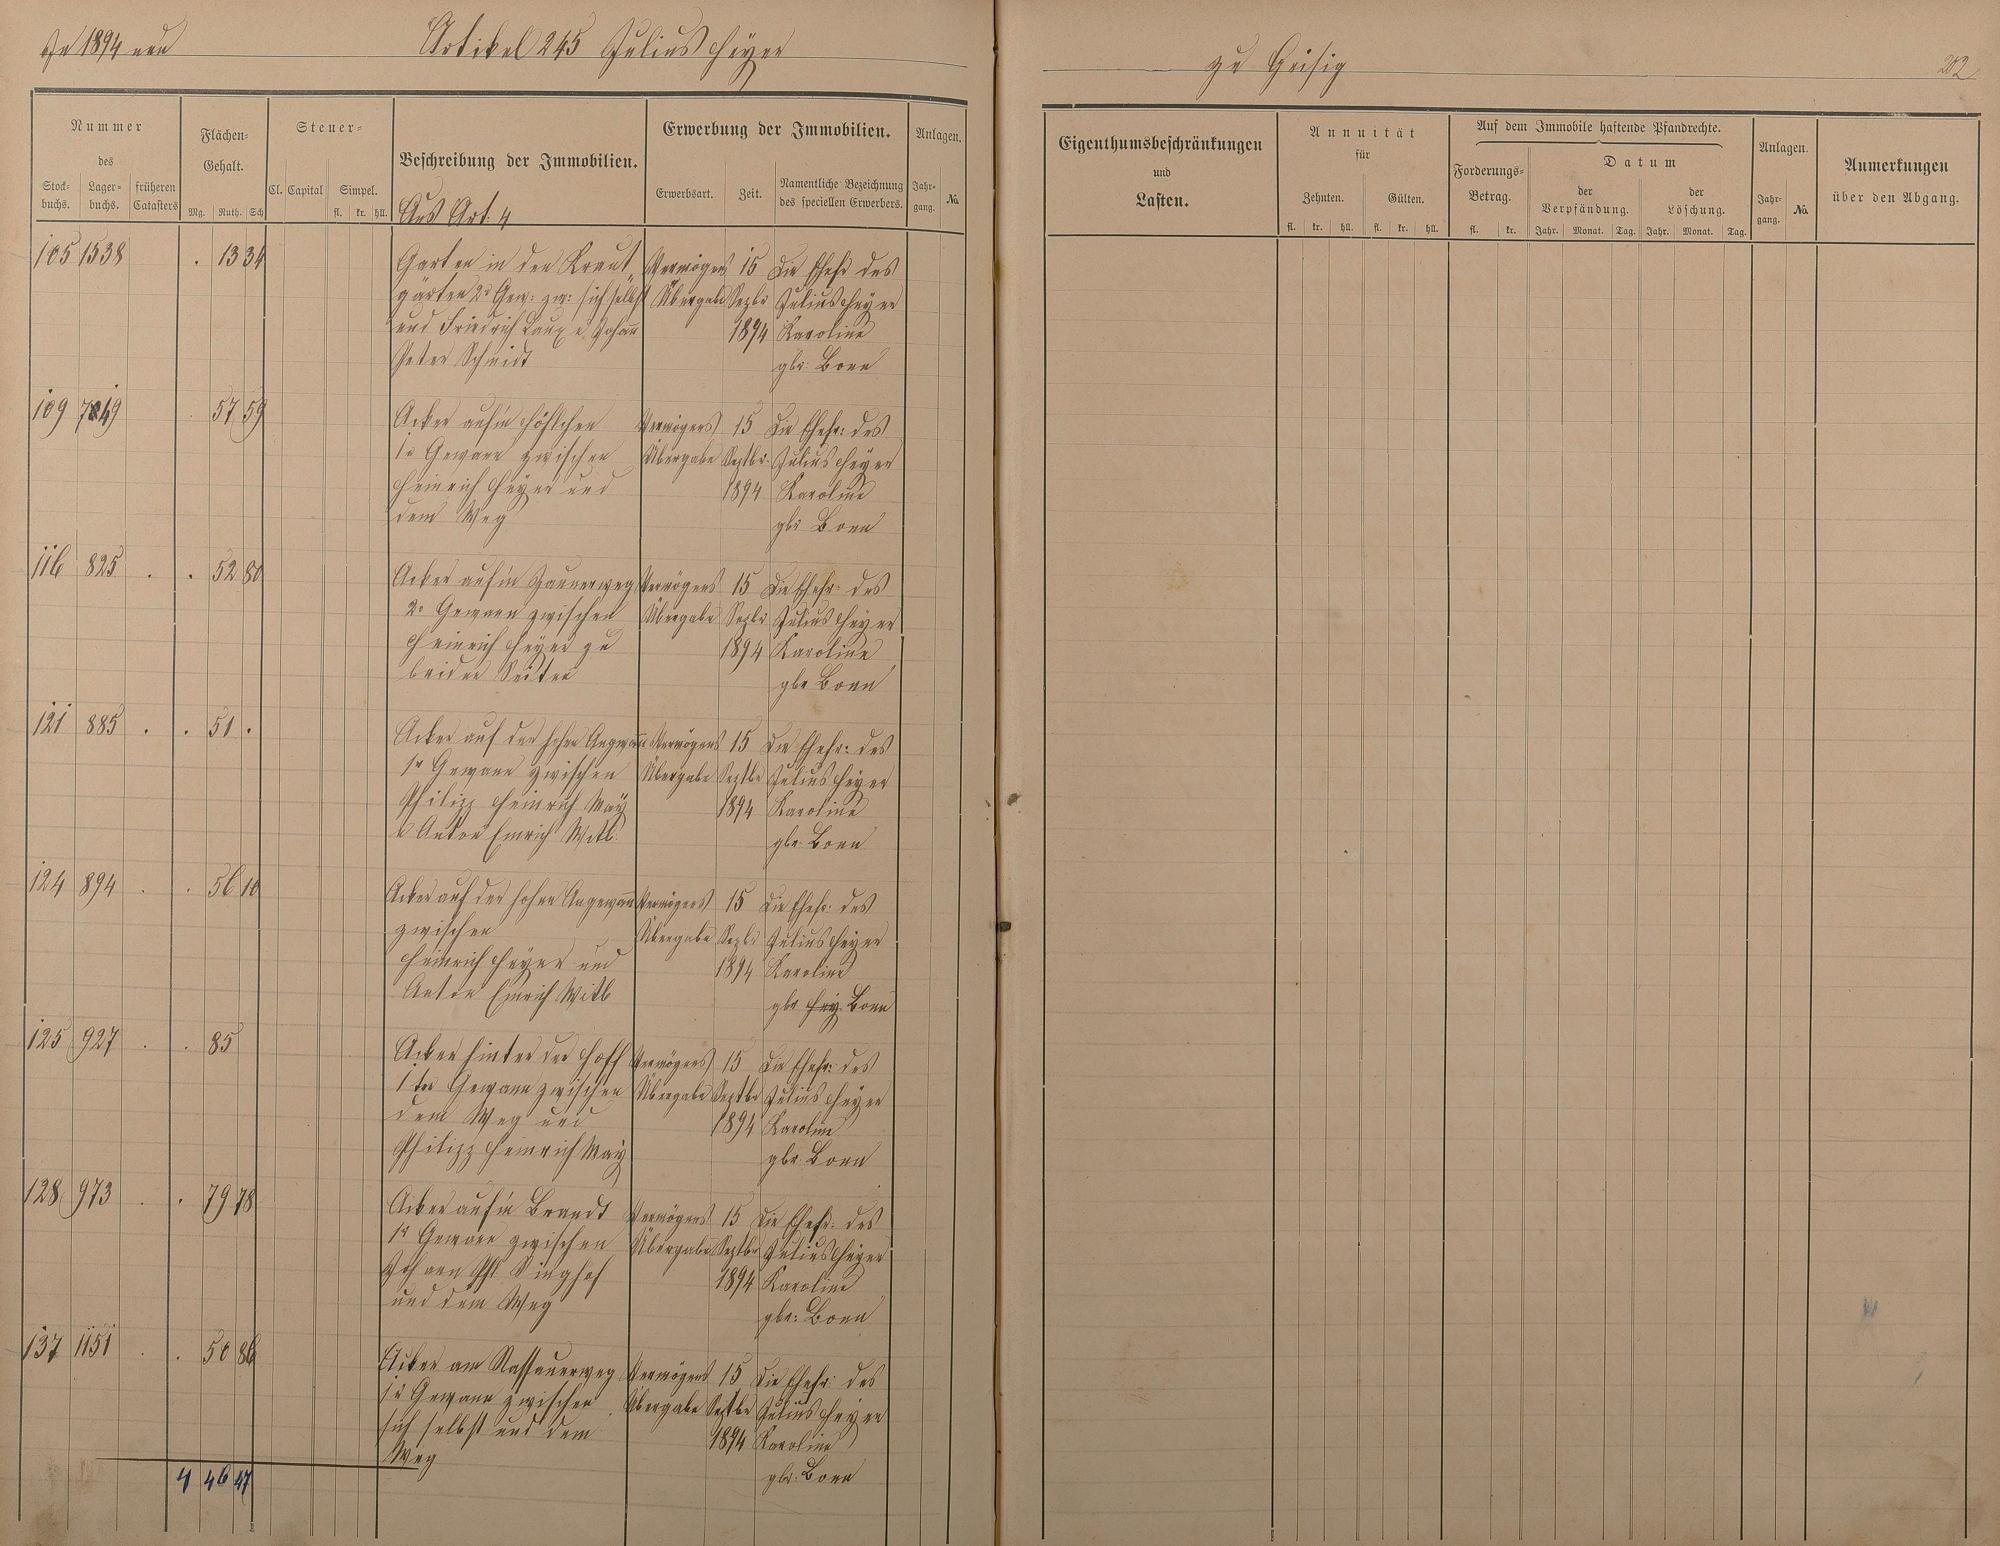 In 1894 neu
Artikel 245 Julius Heyer
zu Geisig
202
Nummer
des
Stock-
buchs.
Lager-
buchs.
früheren
Catasters
Flächen-
Gehalt.
Mg. Ruth. Sch
Steuer-
Cl. Capital
Simpel.
fl. kr. hll.
Beschreibung der Immobilien.
Aus Art. 4
Erwerbung der Immobilien.
Erwerbsart.
Zeit.
Namentliche Bezeichnung
des speciellen Erwerbers.
Anlagen.
Jahr-
gang.
No.
Eigenthumsbeschränkungen
und
Lasten.
Annuität
für
Zehnten.
Gülten.
fl. kr. hll. fl. kr. hll.
Auf dem Immobile haftende Pfandrechte.
Forderungs-
Betrag.
fl. kr.
Datum
der
Verpfändung.
der
Löschung.
Jahr. Monat. Tag. Jahr. Monat. Tag.
Anlagen.
Jahr-
gang.
No.
Anmerkungen
über den Abgang.
105 1538 . 13 34 Garten in den Kraut Vermögens 15 Die Ehefr des
gärten 2r Gew: zw: sich selbst Übergabe Septbr Julius Heyer
und Friedrich Laux e Johann 1894 Karoline
Peter Schmidt gbr: Bonn
109 7049 . 57 59 Acker auf'm Höhlchen Vermögens 15 Die Ehefr: des
1r Gewann zwischen Übergabe Septbr. Julius Heyer
Heinrich Heyer und 1894 Karoline
dem Weg gbr Bonn
116 825 . . 52 80 Acker auf'm Zaunerweg Vermögens 15 Die Ehefr: des
2r Gewann zwischen Übergabe Septbr Julius Heyer
Heinrich Heyer zu 1894 Karoline
beiden Seiten gbr Bonn
121 885 . . 51 . Acker auf der hohen Angewann Vermögens 15 Die Ehefr: des
1r Gewann zwischen Übergabe Septbr Julius Heyer
Philipp Heinrich May 1894 Karoline
e Anton Emrich Witb. gbr. Bonn
124 894 . . 56 10 Acker auf der hohen Angewann Vermögens 15 Die Ehefr: des
zwischen Übergabe Septbr Julius Heyer
Heinrich Heyer und 1894 Karoline
Anton Emrich Witb gbr Hey Bonn
125 927 . . 85 Acker hinter der Hoff Vermögens 15 Die Ehefr: des
1ter Gewann zwischen Übergabe Septbr Julius Heyer
dem Weg und 1894 Karoline
Philipp Heinrich May gbr. Bonn
128 973 . . 79 78 Acker auf'm Brandt Vermögens 15 Die Ehefr: des
1r Gewann zwischen Übergabe Septbr Julius Heyer
Johann Phl Singhof 1894 Karoline
und dem Weg gbr: Bonn
137 1151 . . 50 86 Acker am Nassauerweg Vermögens 15 Die Ehefr: des
1r Gewann zwischen Übergabe Septbr Julius Heyer
sich selbst und dem 1894 Karoline
Weg gbr: Bonn
4 46 47